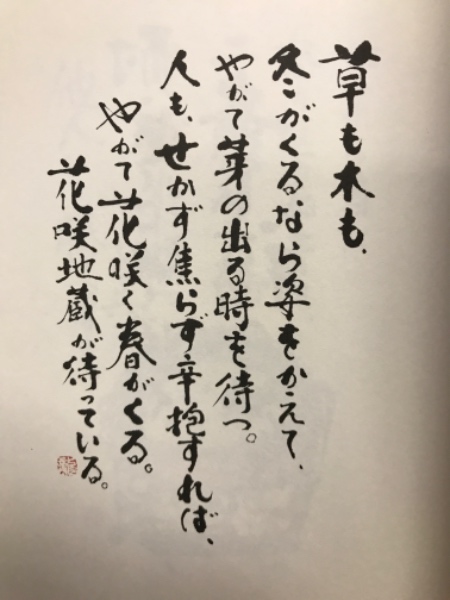 草も木も、
冬がくるなら姿をかえて、
やがて芽の出る時を待つ。
人も、せかず焦らず辛抱すれば、
やがて花咲く春がくる。
花咲地蔵が待っている。